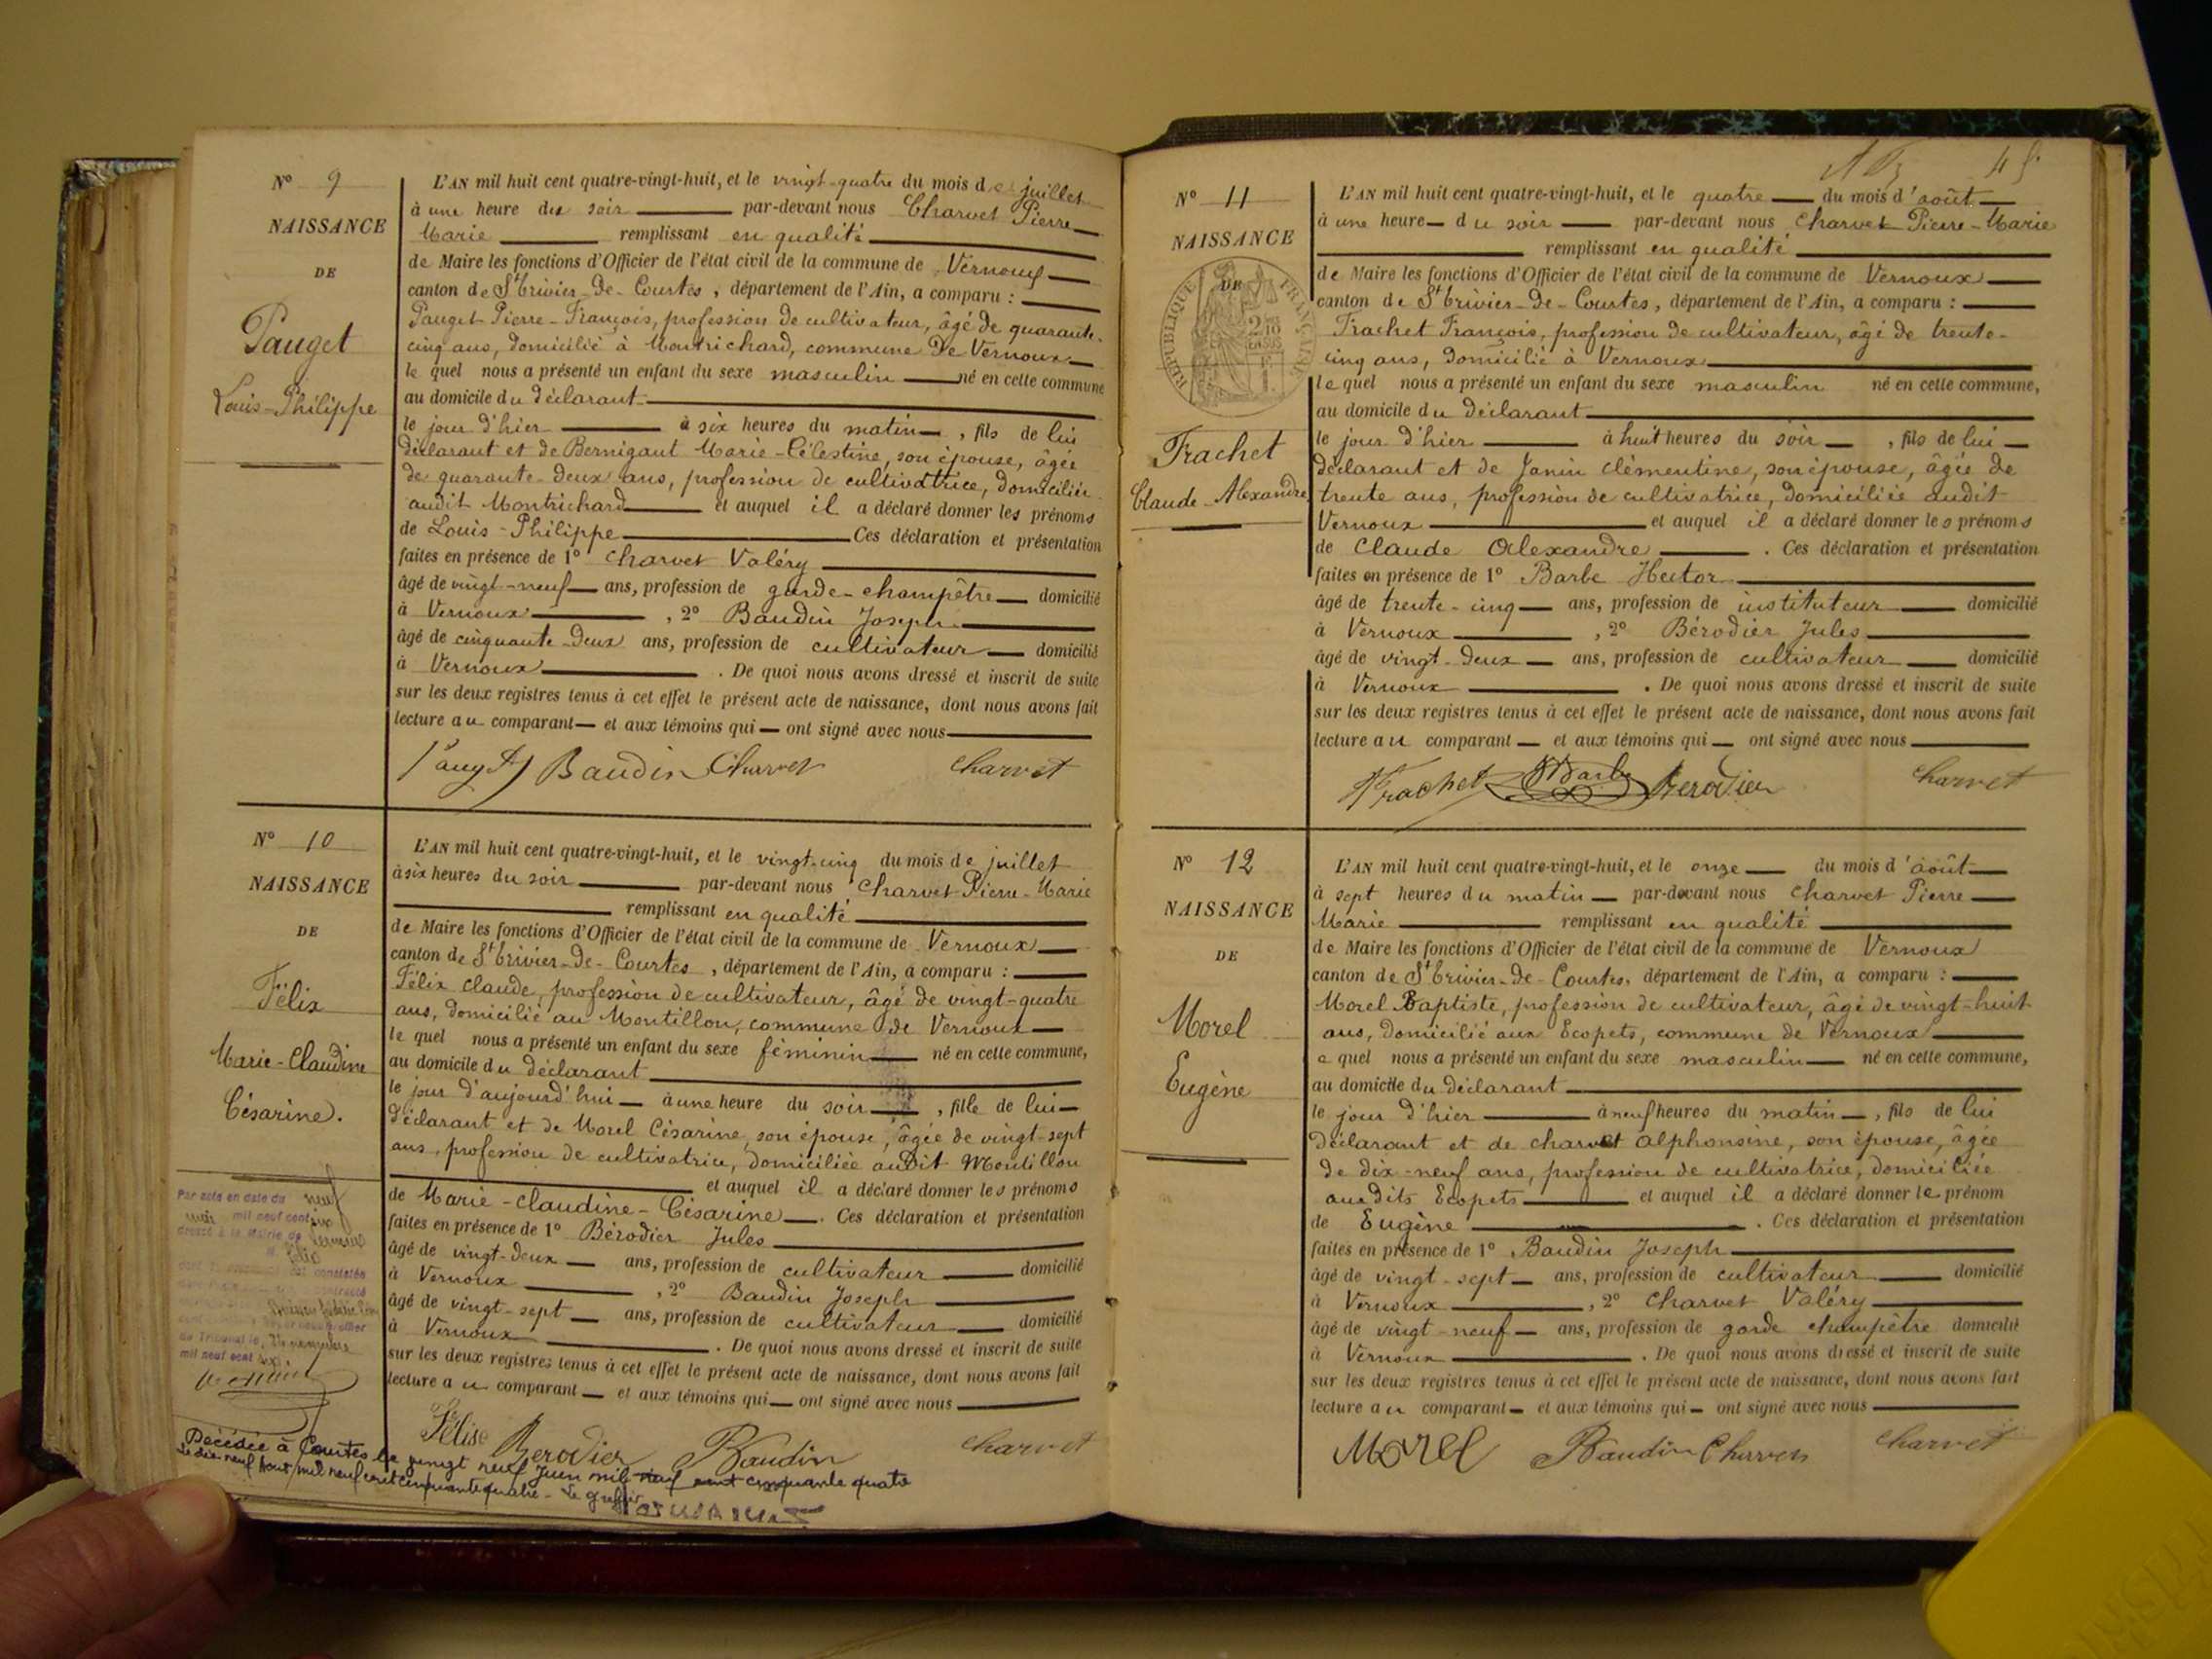 N° 9
NAISSANCE
DE
Pauget
Louis-Philippe
L'AN mil huit cent quatre-vingt-huit, et le vingt-quatre du mois de juillet
à une heure du soir par-devant nous Charvet Pierre
Marie remplissant en qualité
de Maire les fonctions d'Officier de l'état civil de la commune de Vernoux
canton de St Trivier-de-Courtes, département de l'Ain, a comparu :
Pauget Pierre-François, profession de cultivateur, âgé de quarante-
cinq ans, domicilié à Montrichard, commune de Vernoux
le quel nous a présenté un enfant du sexe masculin né en cette commune
au domicile du déclarant
le jour d'hier à six heures du matin, fils de lui
déclarant et de Bernigaut Marie-Célestine, son épouse, âgée
de quarante-deux ans, profession de cultivatrice, domiciliée
audit Montrichard et auquel il a déclaré donner les prénoms
de Louis-Philippe Ces déclaration et présentation
faites en présence de 1° Charvet Valéry
âgé de vingt-neuf ans, profession de garde-champêtre domicilié
à Vernoux, 2° Baudin Joseph
âgé de cinquante-deux ans, profession de cultivateur domicilié
à Vernoux. De quoi nous avons dressé et inscrit de suite
sur les deux registres tenus à cet effet le présent acte de naissance, dont nous avons fait
lecture au comparant et aux témoins qui ont signé avec nous
Pauget Baudin Charvet Charvet
N° 10
NAISSANCE
DE
Félix
Marie-Claudine
Césarine.
L'AN mil huit cent quatre-vingt-huit, et le vingt-cinq du mois de juillet
à six heures du soir par-devant nous Charvet Pierre-Marie
remplissant en qualité
de Maire les fonctions d'Officier de l'état civil de la commune de Vernoux
canton de St Trivier-de-Courtes, département de l'Ain, a comparu :
Félix Claude, profession de cultivateur, âgé de vingt-quatre
ans, domicilié au Montillon, commune de Vernoux
le quel nous a présenté un enfant du sexe féminin né en cette commune,
au domicile du déclarant
le jour d'aujourd'hui à une heure du soir, fille de lui
déclarant et de Morel Césarine, son épouse, âgée de vingt-sept
ans, profession de cultivatrice, domiciliée audit Montillon
et auquel il a déclaré donner les prénoms
de Marie-Claudine-Césarine. Ces déclaration et présentation
faites en présence de 1° Bérodier Jules
âgé de vingt-deux ans, profession de cultivateur domicilié
à Vernoux, 2° Baudin Joseph
âgé de vingt-sept ans, profession de cultivateur domicilié
à Vernoux. De quoi nous avons dressé et inscrit de suite
sur les deux registres tenus à cet effet le présent acte de naissance, dont nous avons fait
lecture au comparant et aux témoins qui ont signé avec nous
Félix Berodier Baudin Charvet
Par acte en date du neuf
mil neuf cent
dressé à la Mairie de Vernoux
Félix
du Tribunal le
mil neuf cent
Décédée à Courtes le vingt neuf Juin mil neuf cent cinquante quatre
Le dix neuf Aout mil neuf cent cinquante quatre - Le greffier
45
N° 11
NAISSANCE
DE
RÉPUBLIQUE FRANÇAISE
2/10 EN SUS
Frachet
Claude-Alexandre
L'AN mil huit cent quatre-vingt-huit, et le quatre du mois d'août
à une heure du soir par-devant nous Charvet Pierre-Marie
remplissant en qualité
de Maire les fonctions d'Officier de l'état civil de la commune de Vernoux
canton de St Trivier-de-Courtes, département de l'Ain, a comparu :
Frachet François, profession de cultivateur, âgé de trente-
cinq ans, domicilié à Vernoux
le quel nous a présenté un enfant du sexe masculin né en cette commune,
au domicile du déclarant
le jour d'hier à huit heures du soir, fils de lui
déclarant et de Janin Clémentine, son épouse, âgée de
trente ans, profession de cultivatrice, domiciliée audit
Vernoux et auquel il a déclaré donner les prénoms
de Claude Alexandre. Ces déclaration et présentation
faites en présence de 1° Barbe Hector
âgé de trente-cinq ans, profession de instituteur domicilié
à Vernoux, 2° Bérodier Jules
âgé de vingt-deux ans, profession de cultivateur domicilié
à Vernoux. De quoi nous avons dressé et inscrit de suite
sur les deux registres tenus à cet effet le présent acte de naissance, dont nous avons fait
lecture au comparant et aux témoins qui ont signé avec nous
Frachet HBarbe Berodier Charvet
N° 12
NAISSANCE
DE
Morel
Eugène
L'AN mil huit cent quatre-vingt-huit, et le onze du mois d'août
à sept heures du matin par-devant nous Charvet Pierre
Marie remplissant en qualité
de Maire les fonctions d'Officier de l'état civil de la commune de Vernoux
canton de St Trivier-de-Courtes, département de l'Ain, a comparu :
Morel Baptiste, profession de cultivateur, âgé de vingt-huit
ans, domicilié aux Ecopets, commune de Vernoux
e quel nous a présenté un enfant du sexe masculin né en cette commune,
au domicile du déclarant
le jour d'hier à neuf heures du matin, fils de lui
déclarant et de Charvet Alphonsine, son épouse, âgée
de dix-neuf ans, profession de cultivatrice, domiciliée
auxdits Ecopets et auquel il a déclaré donner le prénom
de Eugène. Ces déclaration et présentation
faites en présence de 1° Baudin Joseph
âgé de vingt-sept ans, profession de cultivateur domicilié
à Vernoux, 2° Charvet Valéry
âgé de vingt-neuf ans, profession de garde champêtre domicilié
à Vernoux. De quoi nous avons dressé et inscrit de suite
sur les deux registres tenus à cet effet le présent acte de naissance, dont nous avons fait
lecture au comparant et aux témoins qui ont signé avec nous
Morel Baudin Charvet Charvet